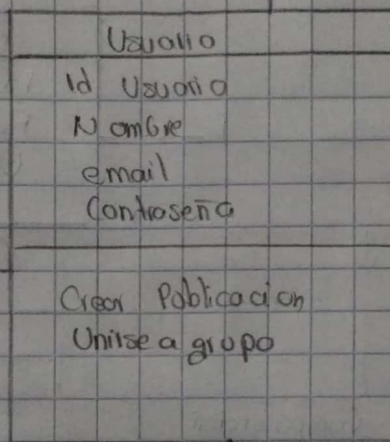 Usuario
Id Usuario
Nombre
email
Contraseña
Crear Poblicacion
Unirse a grupo